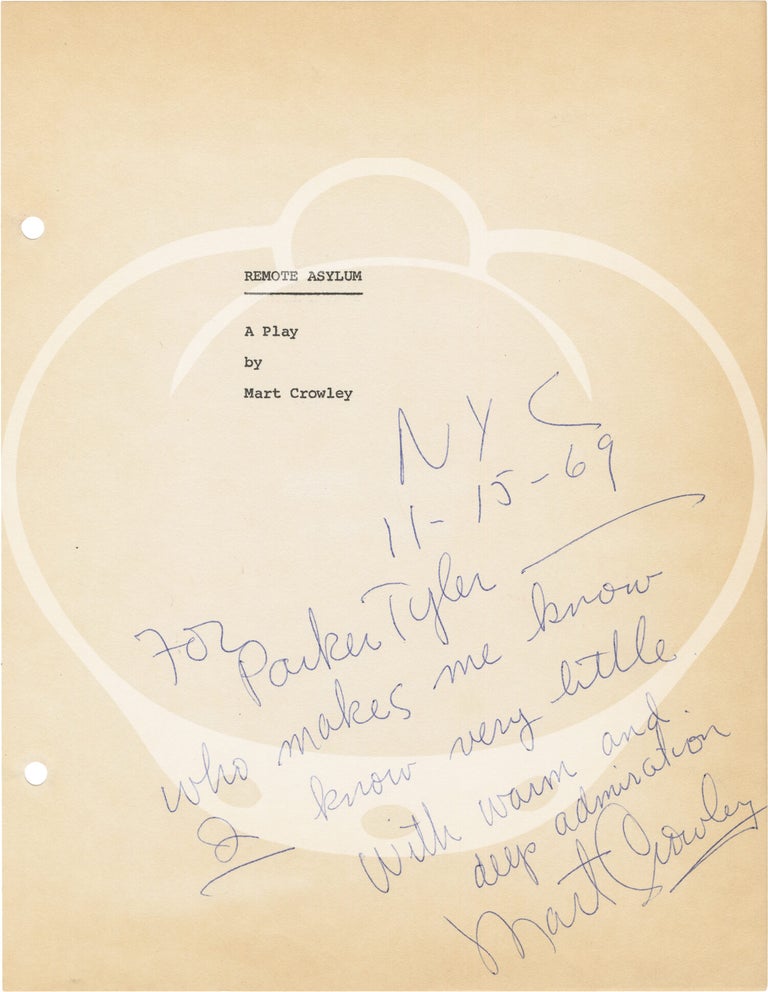 REMOTE ASYLUM
A Play
by
Mart Crowley
NYC
11-15-69
For Parker Tyler —
who makes me know
I know very little
with warm and
deep admiration
Mart Crowley